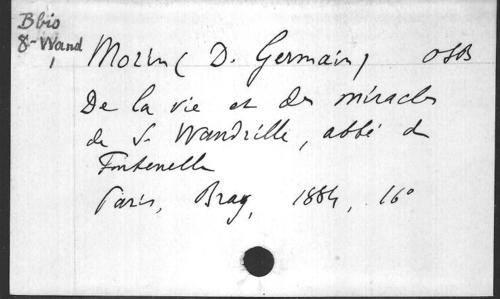 B bio
8- Wand
1
Morin ( D. Germain ) OSB
De la vie et des miracles
de S. Wandrille, abbé de
Fontenelle
Paris, Bray, 1884, 16°